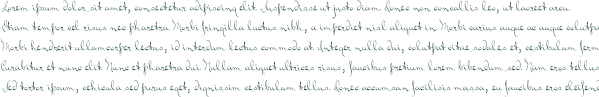 Lorem ipsum dolor sit amet, consectetur adipiscing elit. Suspendisse ut justo diam. Donec non convallis leo, ut laoreet arcu.
Etiam tempor est risus nec pharetra. Morbi fringilla luctus nibh, a imperdiet nisl aliquet in. Morbi varius augue ac augue volutpa
Morbi hendrerit ullamcorper lectus, id interdum lectus commodo at. Integer nulla dui, volutpat vitae sodales et, vestibulum ferm
Curabitur et nunc elit. Nunc et pharetra dui. Nullam aliquet ultrices risus, faucibus pretium lorem bibendum sed. Nam eros tellus
Sed tortor ipsum, vehicula sed purus eget, dignissim vestibulum tellus. Donec accumsan facilisis massa, eu faucibus eros eleifend